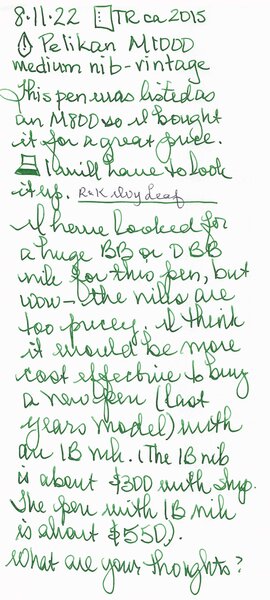 8.11.22 TR ca 2015
Pelikan M1000
medium nib-vintage
This pen was listed as
an M800 so I bought
it for a great price.
I will have to look
it up. R+K Ivy Leaf
I have looked for
a huge BB or OBB
nib for this pen, but
wow- the nibs are
too pricey. I think
it would be more
cost effective to buy
a new pen (last
years model) with
an IB nib. (The IB nib
is about $300 with ship.
The pen with IB nib
is about $550).
What are your thoughts?